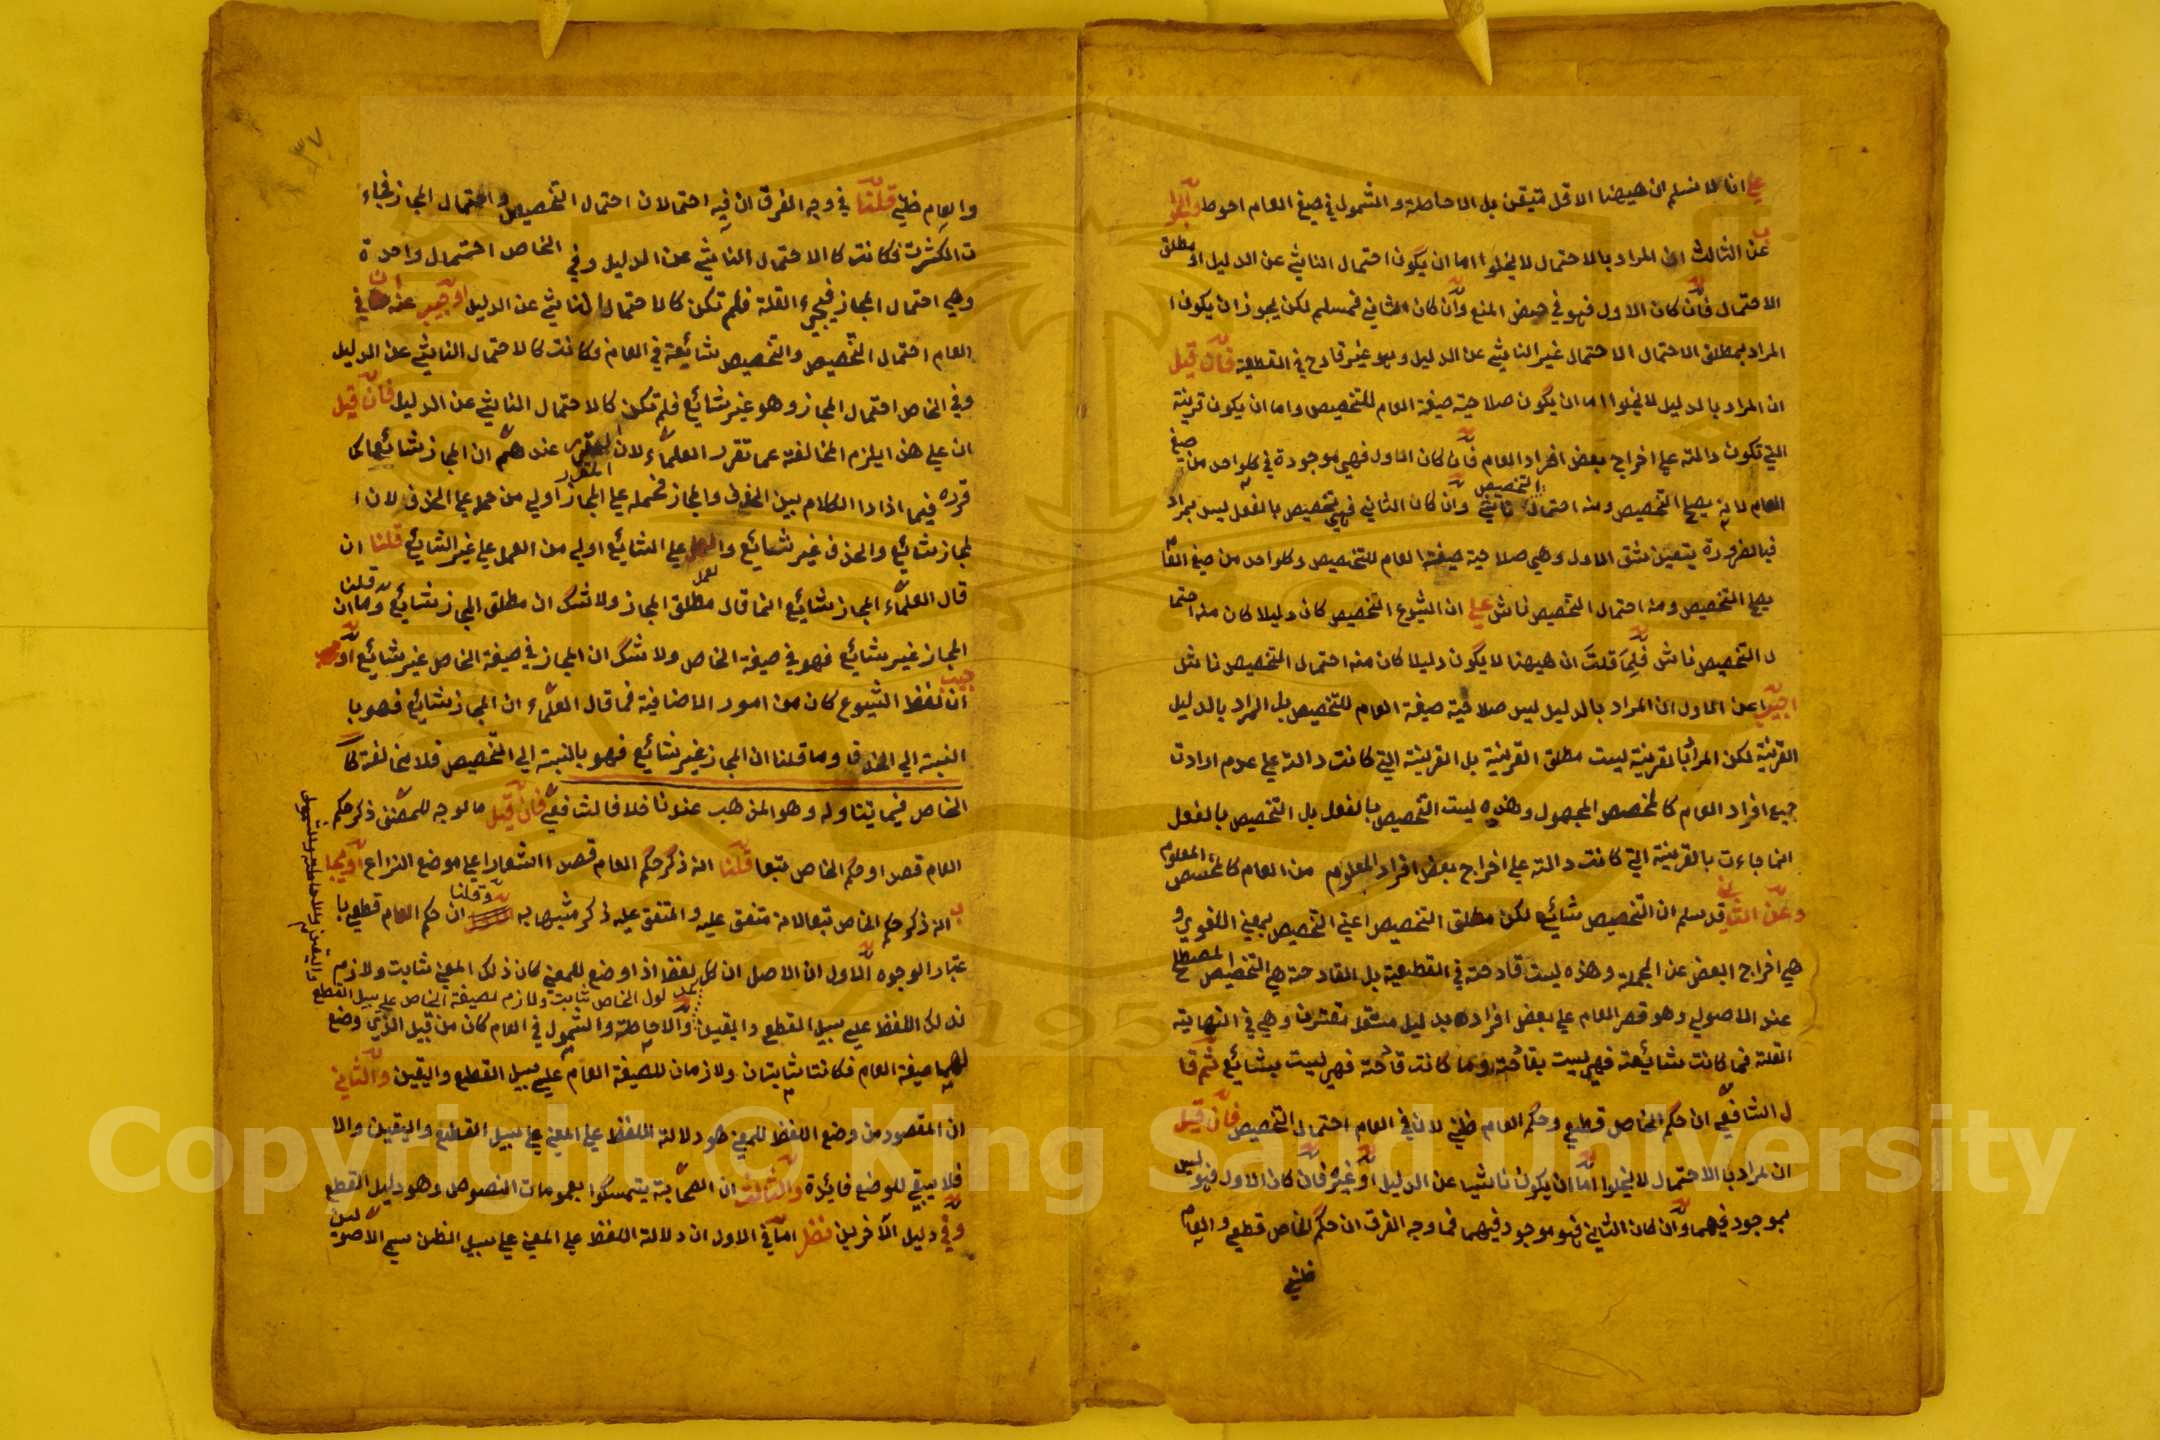 على انا لا نسلم ان ههنا الاقل متيقن بل الاحاطة والشمول في صيغ العام احوط والجواب
عن الثالث ان المراد بالاحتمال لا يخلوا اما ان يكون احتمال الناشئ عن الدليل او مطلق
الاحتمال فان كان الاول فهو في حيض المنع وان كان الثاني فمسلم لكن يجوز ان يكون ا
المراد بمطلق الاحتمال الاحتمال غير الناشئ عن الدليل وهو غير قادح في القطعية فان قيل
ان المراد بالدليل لا يخلوا اما ان يكون صلاحية صيغة العام للتخصيص واما ان يكون قرينة
التي تكون دالة على اخراج بعض افراد العام فان كان الاول فهي موجودة في كلواحد من صيغ
العام لانه يصلح التخصيص ومنه احتمال التخصيص ناشئ وان كان الثاني فهي تخصيص بالفعل ليس بمراد
فبالضرورة يتعين شق الاول وهي صلاحية صيغة العام للتخصيص وكلواحد من صيغ العام
يصلح التخصيص ومنه احتمال التخصيص ناش على ان الشيوع التخصيص كان دليلا كان منه احتما
ل التخصيص ناش فلم قلت ان ههنا لا يكون دليلا كان منه احتمال التخصيص ناش
اجيب عن الاول ان المراد بالدليل ليس صلاحية صيغة العام للتخصيص بل المراد بالدليل
القرينة لكن المراد بالقرينة ليست مطلق القرينة بل القرينة التي كانت دالة على عدم ارادة
جميع افراد العام كالمخصص المجهول وهذه ليست التخصيص بالفعل بل التخصيص بالفعل
انما جاءت بالقرينة التي كانت دالة على اخراج بعض افراد المعلوم من العام كالمخصص المعلوم
وعن الثاني قد سلم ان التخصيص شائع لكن مطلق التخصيص اعني التخصيص بمعنى اللغوي و
هي اخراج البعض عن الجملة وهذه ليست قادحة في القطعية بل القادحة هي التخصيص المصطلح
عند الاصولي وهو قصر العام على بعض افراده بدليل مستقل مقترن وهي في النهاية
القلة فما كانت شائعة فهي ليست بقادحة وما كانت قادحة فهي ليست بشائع ثم قا
ل الشافعي ان حكم الخاص قطعي وحكم العام ظني لان في العام احتمال التخصيص فان قيل
ان المراد بالاحتمال لا يخلوا اما ان يكون ناشيا عن الدليل او غيره فان كان الاول فهو ليس
بموجود فيهما وان كان الثاني فهو موجود فيهما فما وجه الفرق ان حكم الخاص قطعي والعام
ظني
٣٧
والعام ظني قلنا في وجه الفرق ان فيه احتمالان احتمال التخصيص واحتمال المجاز فجاء
ت الكثرت فكانت كالاحتمال الناشئ عن الدليل وفي الخاص احتمال واحدة
وهي احتمال المجاز فيجيء القلة فلم تكن كالاحتمال الناشئ عن الدليل او جيب عنه ان في
العام احتمال التخصيص والتخصيص شائعة في العام وكانت كالاحتمال الناشئ عن الدليل
وفي الخاص احتمال المجاز وهو غير شائع فلم تكن كالاحتمال الناشئ عن الدليل فان قيل
ان على هذا يلزم المخالفة عما تقرر العلماء لان المقرر عندهم ان المجاز شائع كما
قرره فيما اذا دا الكلام بين الحذف والمجاز فحمله على المجاز اولى من حمله على الحذف لان ا
لمجاز شائع والحذف غير شائع والعمل على الشائع اولى من العمل على غير الشائع قلنا ان
قال العلماء المجاز شائع انما قال مطلق المجاز ولا شك ان مطلق المجاز شائع وما قلنا ان
المجاز غير شائع فهو في صيغة الخاص ولا شك ان المجاز في صيغة الخاص غير شائع او
جيب ان لفظ الشيوع كان من امور الاضافية فما قال العلماء ان المجاز شائع فهو با
النسبة الى الحذف وما قلنا ان المجاز غير شائع فهو بالنسبة الى التخصيص فلا مخالفة كا
الخاص فيما يتناوله وهو المذهب عندنا خلافا لشافعي فان قيل ما لوجه للمصنف ذكر حكم
العام قصدا وحكم الخاص تبعا قلنا انه ذكر حكم العام قصدا اشعارا على موضع النزاع او يجا
ب انه ذكر حكم الخاص تبعا لانه متفق عليه والمتفق عليه ذكر مشبها به وقلنا ان حكم العام قطعي با
عتبار الوجوه الاول ان الاصل ان كل لفظ اذا وضع للمعنى كان ذلك المعنى ثابت ولازم
مدلول الخاص ثابت ولازم لصيغة الخاص على سبيل القطع
لذلك اللفظ على سبيل القطع واليقين والاحاطة والشمول في العام كان من قبيل الذي وضع
لهما صيغة العام فكانتا ثابتان ولازمان للصيغة العام على سبيل القطع واليقين والثاني
ان المقصود من وضع اللفظ للمعنى هو دلالة اللفظ على المعنى على سبيل القطع واليقين والا
فلا يبقى للوضع فائدة والثالث ان الصحابة يتمسكوا بعمومات النصوص وهو دليل القطع
وفي دليل الآخرين نظر اما في الاول ان دلالة اللفظ على المعنى على سبيل الظن ليس الاصوت